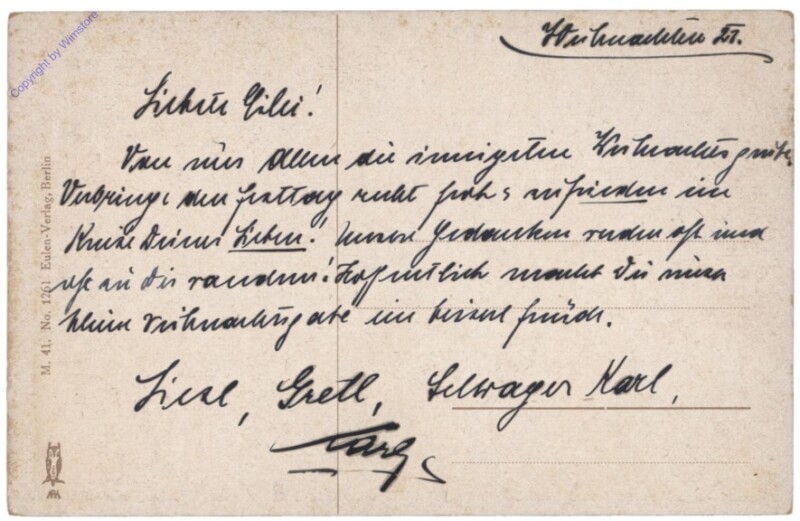 Weihnachten 21.
Lieber Gilei!
Von uns Allen die innigsten Weihnachtsgrüße.
Verbringe den Festtag recht froh & zufrieden im
Kreise Deiner Lieben! Unsere Gedanken werden oft und
oft zu Dir wandern! Hoffentlich macht Dir meine
kleine Weihnachtsgabe ein bissel Freude.
Liesl, Gretl, Schwager Karl,
Copyright by Wimstore
M. 41. No. 1261 Eulen-Verlag, Berlin